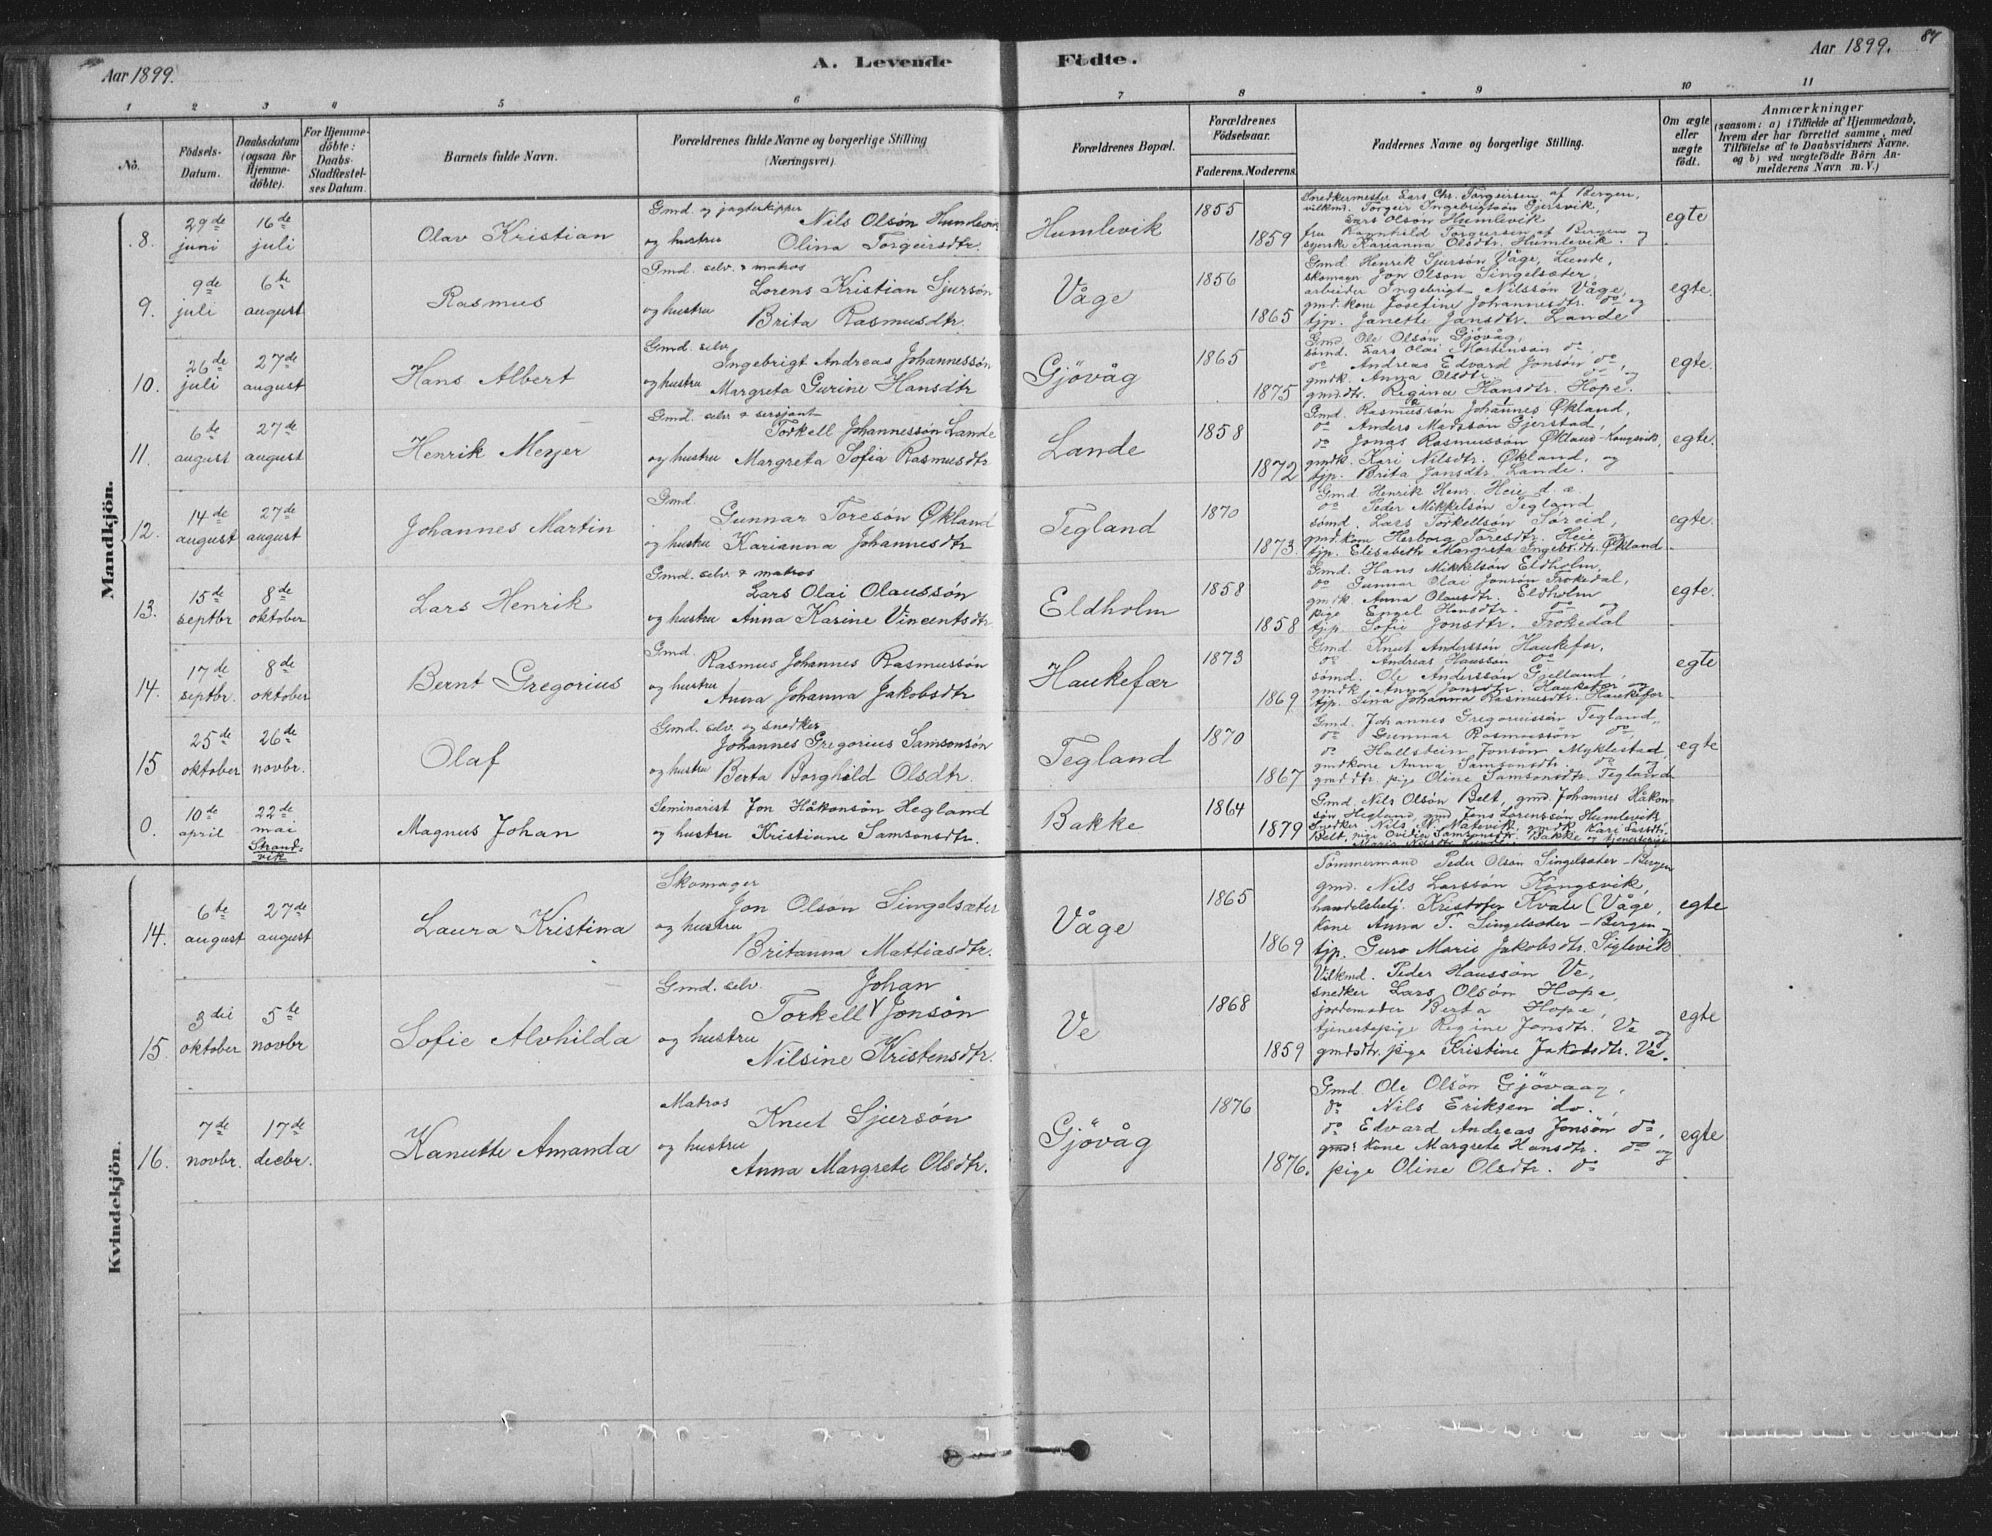 Aar 1899.
A. Levende Födte.
Aar 1899. 87
1 2 3 4 5 6 7 8 9 10 11
No.
Födsels-Datum.
Daabsdatum (ogsaa for Hjemmedöbte).
For Hjemmedöbte: Daabs-Stadfæstelses Datum.
Barnets fulde Navn.
Forældrenes fulde Navne og borgerlige Stilling (Næringsvei).
Forældrenes Bopæl.
Forældrenes Födselsaar.
Faderens. Moderens.
Faddernes Navne og borgerlige Stilling.
Om ægte eller uægte födt.
Anmærkninger
(saasom: a) i Tilfælde af Hjemmedaab,
hvem der har forrettet samme, med
Tilföielse af to Daabsvidners Navne.
og b) ved uægtefödte Börn An-
melderens Navn m. V.)
Mandkjön.
8. 29de juni 16de juli
Olav Kristian
Gmd. og jagteskipper
Nils Olsön Humlevik
og hustru Olina Torgeirsdtr.
Humlevik
1855
1859
Snedkermester Lars Chr. Torgeirsen af Bergen,
ulkmd. Torgeir Ingebrigtsön Gjersvik,
Lars Olsön Humlevik
fru Ragnhild Torgersen af Bergen og
syerske Karianna Olsdtr. Humlevik.
egte
9. 9de juli 6te august
Rasmus
Gmd. selv. & matros
Lorens Kristian Sjursön
og hustru Brita Rasmusdtr.
Våge
1856
1865
Gmd. Henrik Sjursön Våge, Lunde,
skomager Jon Olson Singelsæter,
arbeider Ingebrigt Nilssön Våge,
gmd. kone Josefine Johannesdtr. do og
tjp. Janette Jansdtr. Lande
egte.
10. 26de juli 27de august
Hans Albert
Gmd. selv.
Ingebrigt Andreas Johannessön
og hustru Margreta Gurine Hansdtr
Gjövåg
1865
1875
Gmd. Ole Olsön Gjövåg,
sömd. Lars Olai Mortensön do,
do Andreas Edvard Jonsön do,
gmdk. Anna Olsdtr. do og
gmd.dtr. Regina Hansdtr. Hope.
egte.
11. 6te august 27de august
Henrik Meyer
Gmd. selv & sersjant
Torkell Johannessön Lande
og hustru Margreta Sofia Rasmusdtr
Lande
1858
1872
Gmd. Rasmussön Johannes Økland,
do Anders Madssön Gjerstad,
do Jonas Rasmussön Økland-Kongsvik,
gmdk. Kari Nilsdtr. Økland, og
tjp. Brita Jansdtr. Lande.
egte.
12. 14de august 27de august
Johannes Martin
Gmd.
Gunnar Toresön Økland
og hustru Karianna Johannesdtr
Tegland
1870
1873.
Gmd. Henrik Henr. Heie d. æ.
do Peder Mikkelsön Tegland
sömd. Lars Torkellsön Söreid,
gmd. kone Herborg Toresdtr. Heie og
tjp. Elisabeth Margreta Ingebr.dtr. Økland
egte.
13. 15de septbr 8de oktober
Lars Henrik
Gmd. selv. & matros
Lars Olai Olaussön
og hustru Anna Karine Vincentsdtr
Eldholm
1858
1858
Gmd. Hans Mikkelsön Eldholm,
do Gunnar Olai Jonsön Trokedal,
gmdk. Anna Olausdtr. Eldholm
pige Engel Hansdtr. do og
tjp. Sofie Jonsdtr. Trokedal
egte.
14. 17de septbr. 8de oktober
Bernt Gregorius
Gmd.
Rasmus Johannes Rasmussön
og hustru Anna Johanna Jakobsdtr
Haukefær
1873
1869
Gmd. Knut Anderssön Haukefær,
do Andreas Hanssön do
sömd. Ole Anderssön Gjelland,
gmdk. Anna Jonsdtr. Haukefær og
tjp. Sina Johanna Rasmusdtr. Haukefær
egte
15 25de oktober 26de novbr.
Olaf
Gmd. selv. og snedker
Johannes Gregorius Samsonsön
og hustru Berta Borghild Olsdtr.
Tegland
1870
1867
Gmd. Johannes Gregoriussön Tegland,
do Gunnar Rasmussön do,
do Hallstein Jonsön Myklestad
gmdkone Anna Samsonsdtr. do og
gmd.dtr. pige Oline Samsonsdtr. Tegland
egte
0. 10de april 22de mai Strandvik
Magnus Johan
Seminarist Jon Håkonsön Hegland
og hustru Kristiane Samsonsdtr.
Bakke
1864
1879
Gmd. Nils Olsön Belt, gmd. Johannes Håkon-
sön Hegland, gmd Jens Lorenssön Humlevik
Snedker Nils N. Natevik, gmdk. Kari Larsdtr.
Belt, pige Ovidia Samsonsdtr. Bakke og tjenestepige
Kvindekjön.
14. 6te august 27de august
Laura Kristina
Skomager
Jon Olsön Singelsæter
og hustru
Britanna Mattiasdtr.
Våge
1865
1869
Tömmermand Peder Olson Singelsæter - Bergen
gmd. Nils Larssön Kongsvik,
handelsbetj. Kristofer Kvale (Våge,
kone Anna T. Singelsæter - Bergen og
tjp. Guro Marie Jakobsdtr. Siglevik
egte
15. 3die oktober 5te novbr
Sofie Alvhilda
Gmd. selv. Johan
Torkell V Jonsön
og hustru
Nilsine Kristensdtr.
Ve
1868
1859
Ulkmd. Peder Hanssön Ve,
snedker Lars Olsön Hope,
jordemoder Berta Hope,
tjenestepige Regine Jonsdtr. Ve og
gmdsdtr. pige Kristine Jakobsdtr. Ve.
egte
16. 7de novbr. 17de decbr.
Kanutte Amanda
Matros
Knut Sjursön
og hustru
Anna Margrete Olsdtr.
Gjövåg
1876
1876.
Gmd. Ole Olsön Gjövaag,
do Nils Eriksen do.,
do Edvard Andreas Jonsön do,
gmds kone Margrete Hansdtr. do og
pige Oline Olsdtr. do
egte